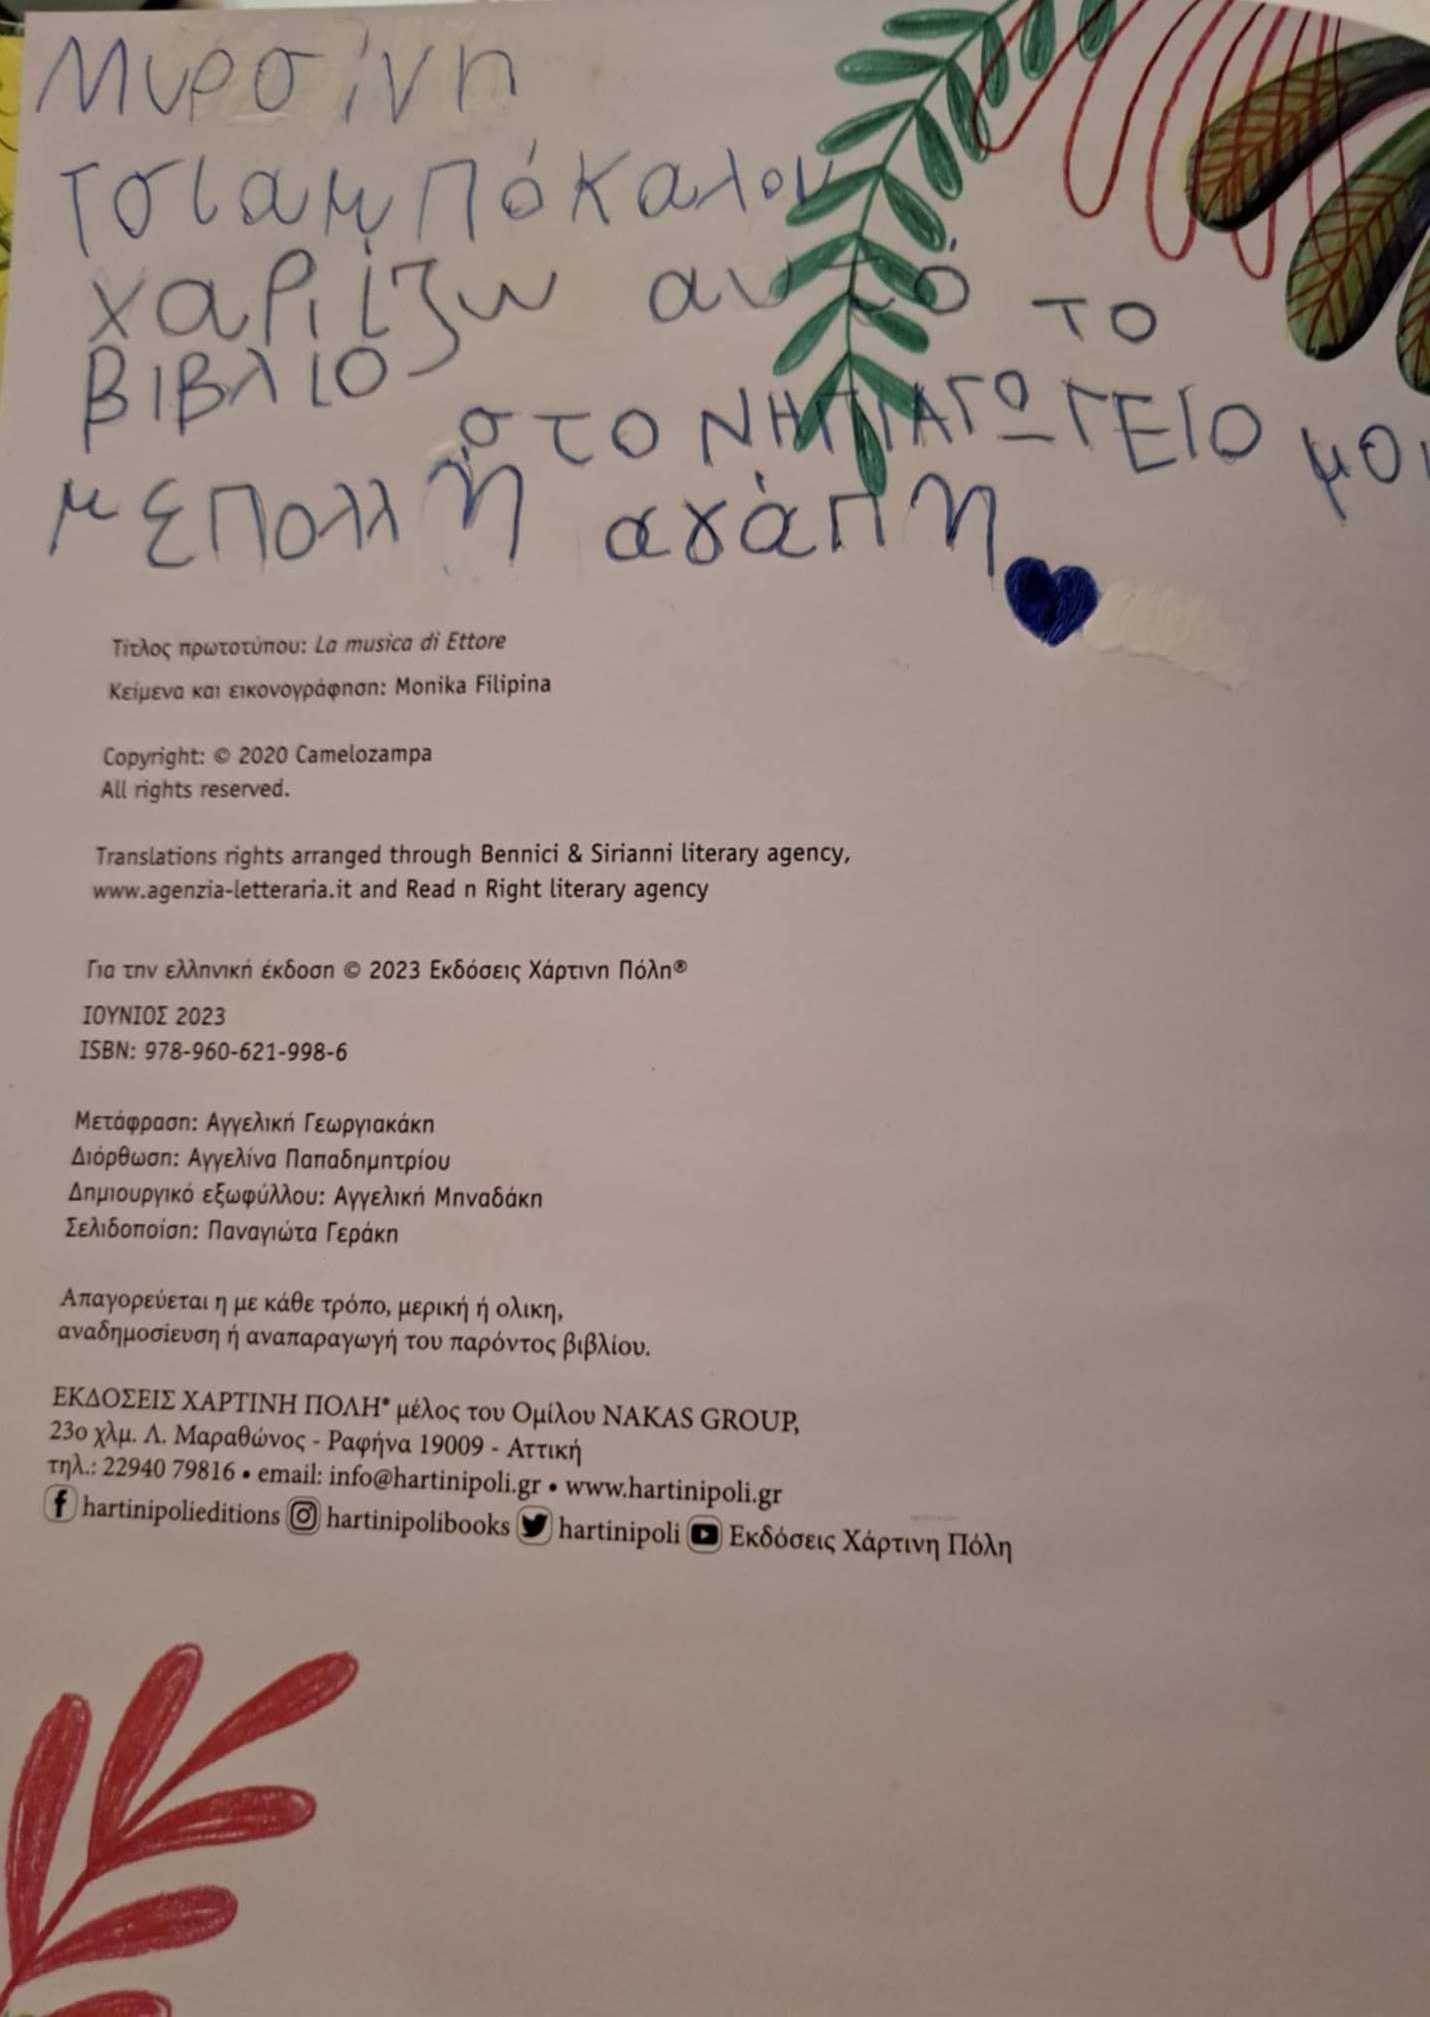 Μυρσίνη
τσιαμπόκαλου
χαρίζω αυτό το
βιβλιο
στο ΝΗΠΙΑΓΩΓΕΙΟ μου
με πολλή αγάπη
Τίτλος πρωτοτύπου: La musica di Ettore
Κείμενα και εικονογράφηση: Monika Filipina
Copyright: © 2020 Camelozampa
All rights reserved.
Translations rights arranged through Bennici & Sirianni literary agency,
www.agenzia-letteraria.it and Read n Right literary agency
Για την ελληνική έκδοση © 2023 Εκδόσεις Χάρτινη Πόλη®
ΙΟΥΝΙΟΣ 2023
ISBN: 978-960-621-998-6
Μετάφραση: Αγγελική Γεωργιακάκη
Διόρθωση: Αγγελίνα Παπαδημητρίου
Δημιουργικό εξωφύλλου: Αγγελική Μηναδάκη
Σελιδοποίση: Παναγιώτα Γεράκη
Απαγορεύεται η με κάθε τρόπο, μερική ή ολικη,
αναδημοσίευση ή αναπαραγωγή του παρόντος βιβλίου.
ΕΚΔΟΣΕΙΣ ΧΑΡΤΙΝΗ ΠΟΛΗ® μέλος του Ομίλου NAKAS GROUP,
23ο χλμ. Λ. Μαραθώνος - Ραφήνα 19009 - Αττική
τηλ.: 22940 79816 • email: info@hartinipoli.gr • www.hartinipoli.gr
hartinipolieditions hartinipolibooks hartinipoli Εκδόσεις Χάρτινη Πόλη